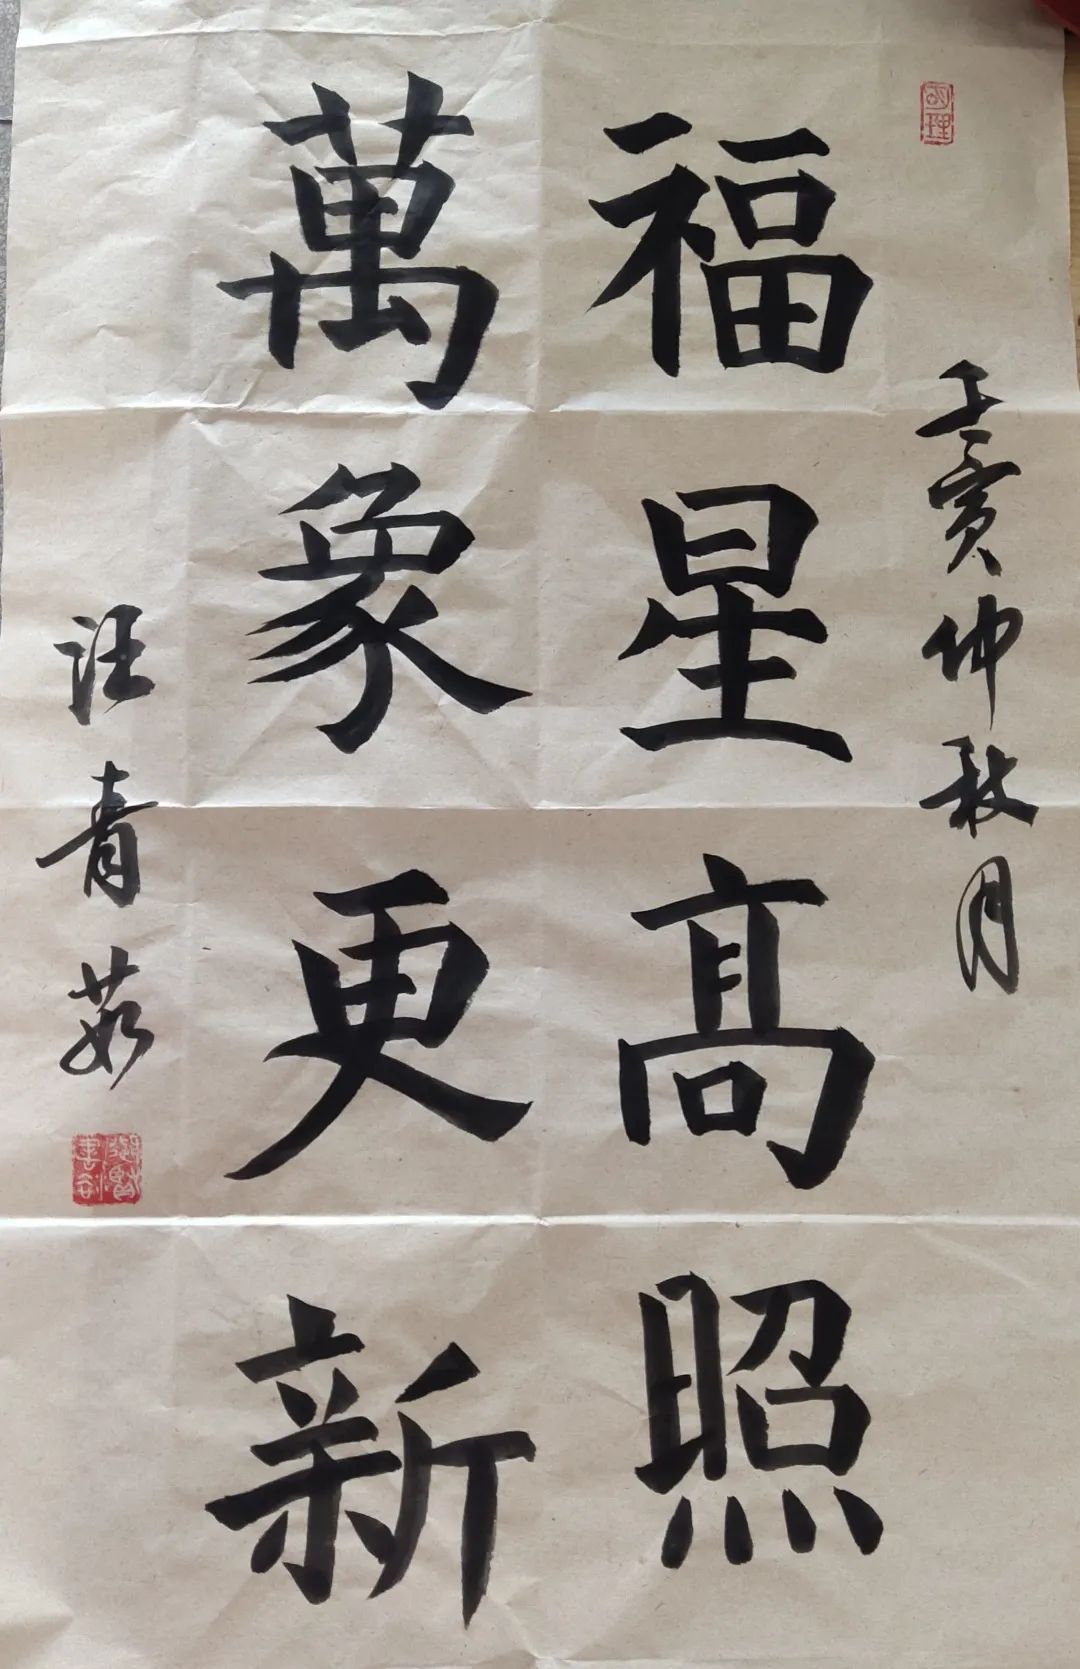 壬寅仲秋月
福星髙照
萬象更新
汪青茹